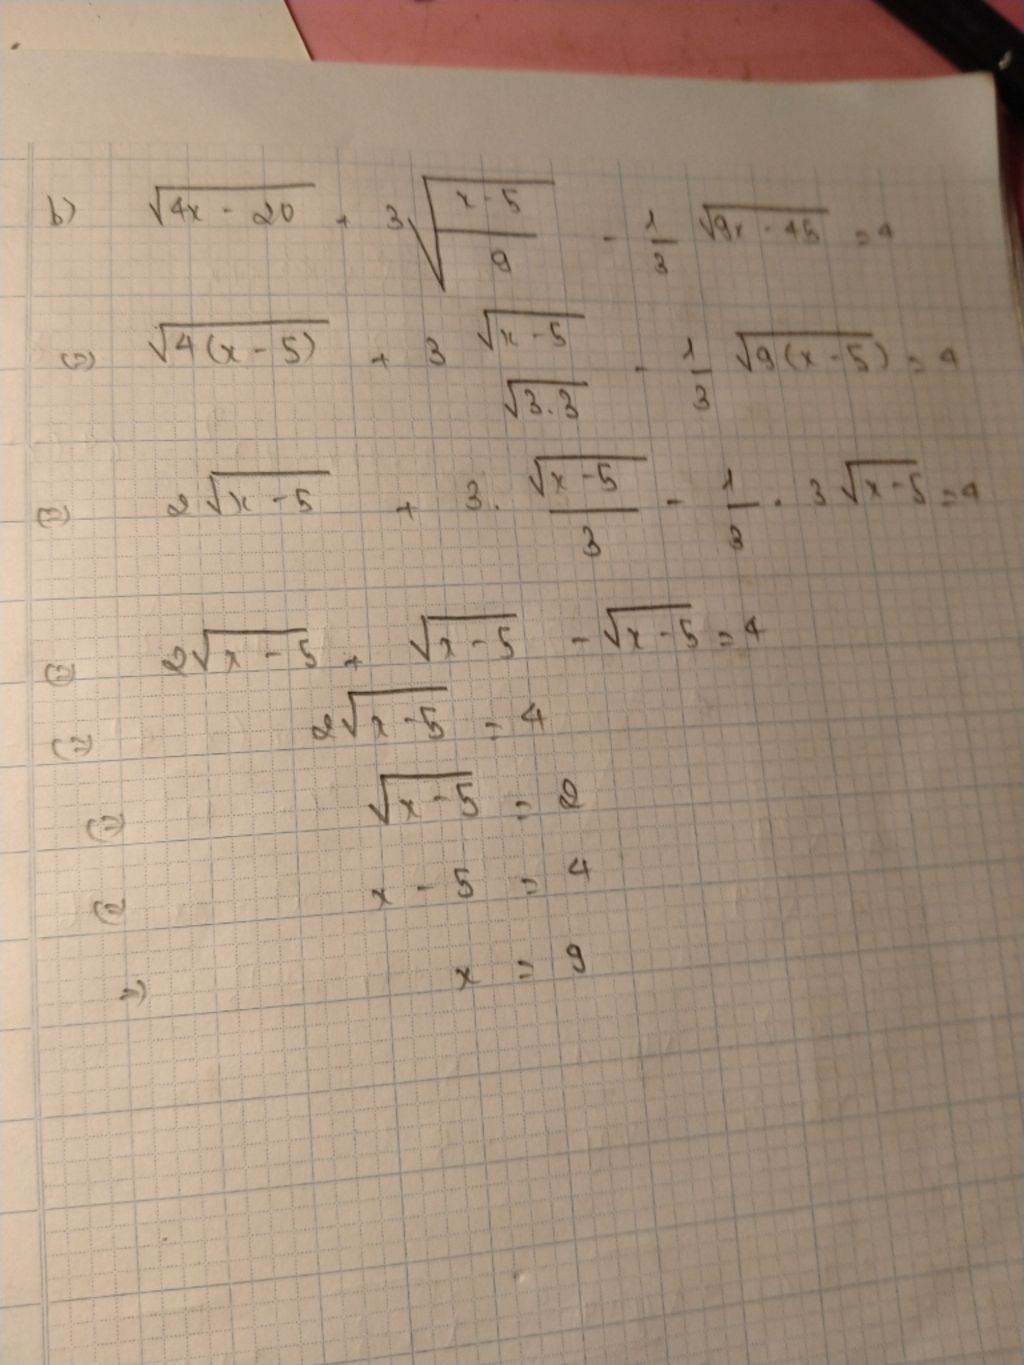 b) √(4x - 20) + 3√((x - 5)/9) - 1/3 √(9x - 45) = 4
⇔ √(4(x - 5)) + 3 √(x - 5)/√(3.3) - 1/3 √(9(x - 5)) = 4
⇔ 2√(x - 5) + 3. √(x - 5)/3 - 1/3 . 3√(x - 5) = 4
⇔ 2√(x - 5) + √(x - 5) - √(x - 5) = 4
⇔ 2√(x - 5) = 4
⇔ √(x - 5) = 2
⇔ x - 5 = 4
⇔ x = 9